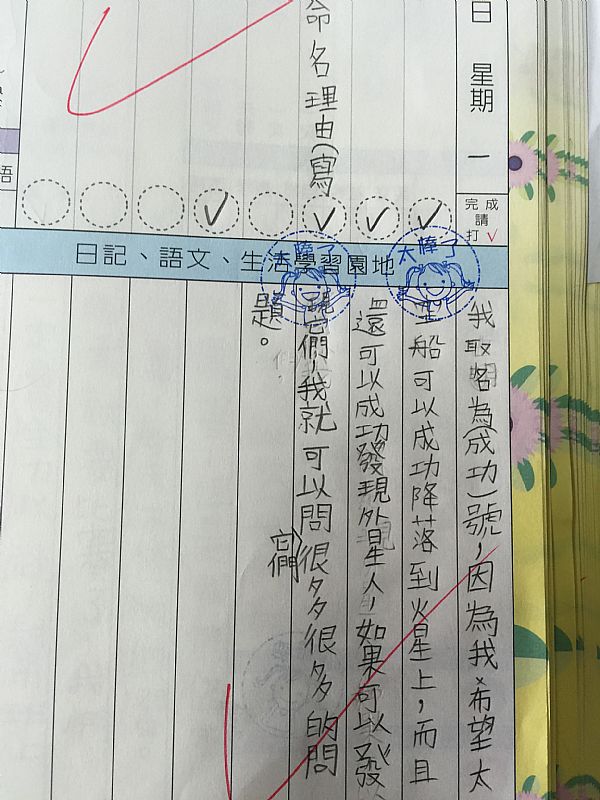 日 星期 一
完成請打✓
命名理由(寫
日記、語文、生活學習園地
太棒了
棒了
我取名為(成功)號,因為我希望太
空船可以成功降落到火星上,而且
還可以成功發現外星人,如果可以發
現它們,我就可以問它們很多很多的問
題。
語